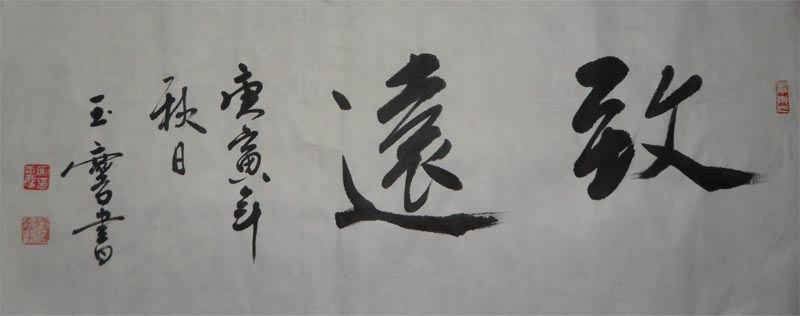 致遠
庚寅年
秋日
玉麐書